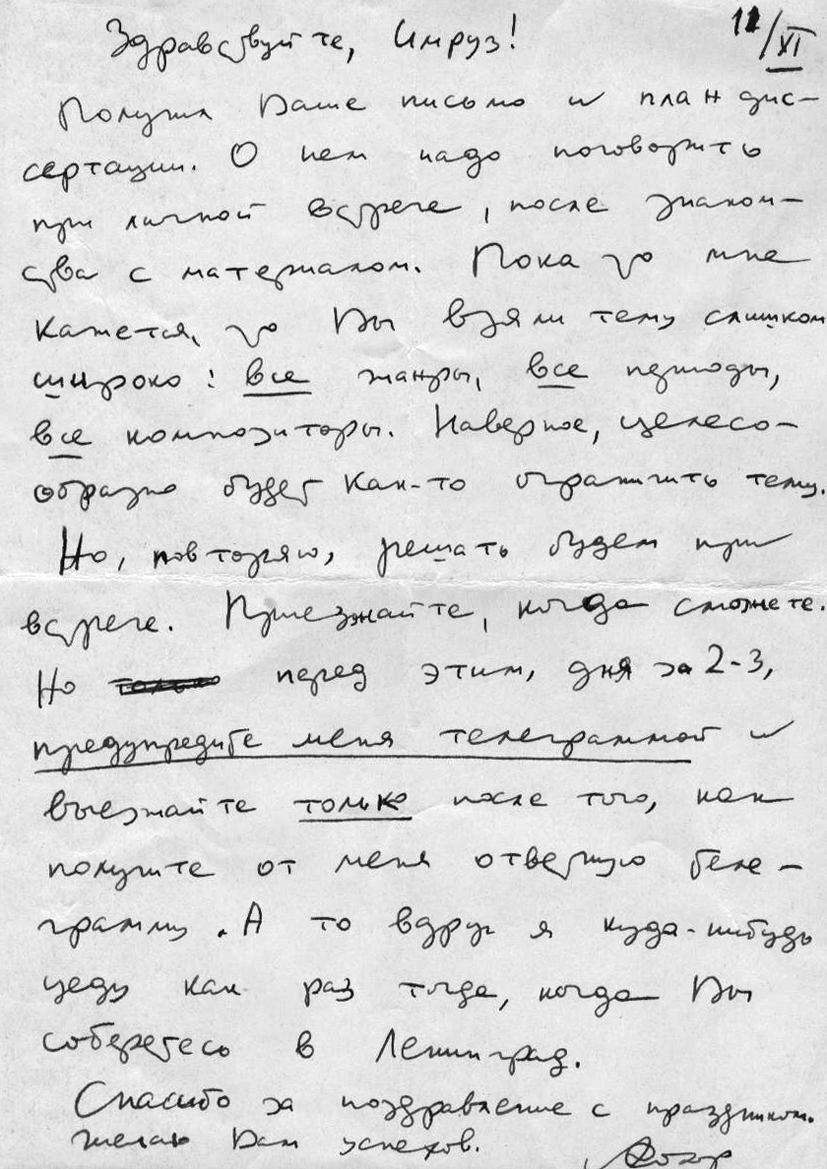 11/XI
Здравствуйте, Имруз!
Получил Ваше письмо и план дис-
сертации. О нем надо поговорить
при личной встрече, после знаком-
ства с материалом. Пока что мне
кажется, что Вы взяли тему слишком
широко: все жанры, все периоды,
все композиторы. Наверное, целесо-
образно будет как-то ограничить тему.
Но, повторяю, решать будем при
встрече. Приезжайте, когда сможете.
Но только перед этим, дня за 2-3,
предупредите меня телеграммой и
выезжайте только после того, как
получите от меня ответную теле-
грамму. А то вдруг я куда-нибудь
уеду как раз тогда, когда Вы
соберетесь в Ленинград.
Спасибо за поздравление с праздником.
Желаю Вам успехов.